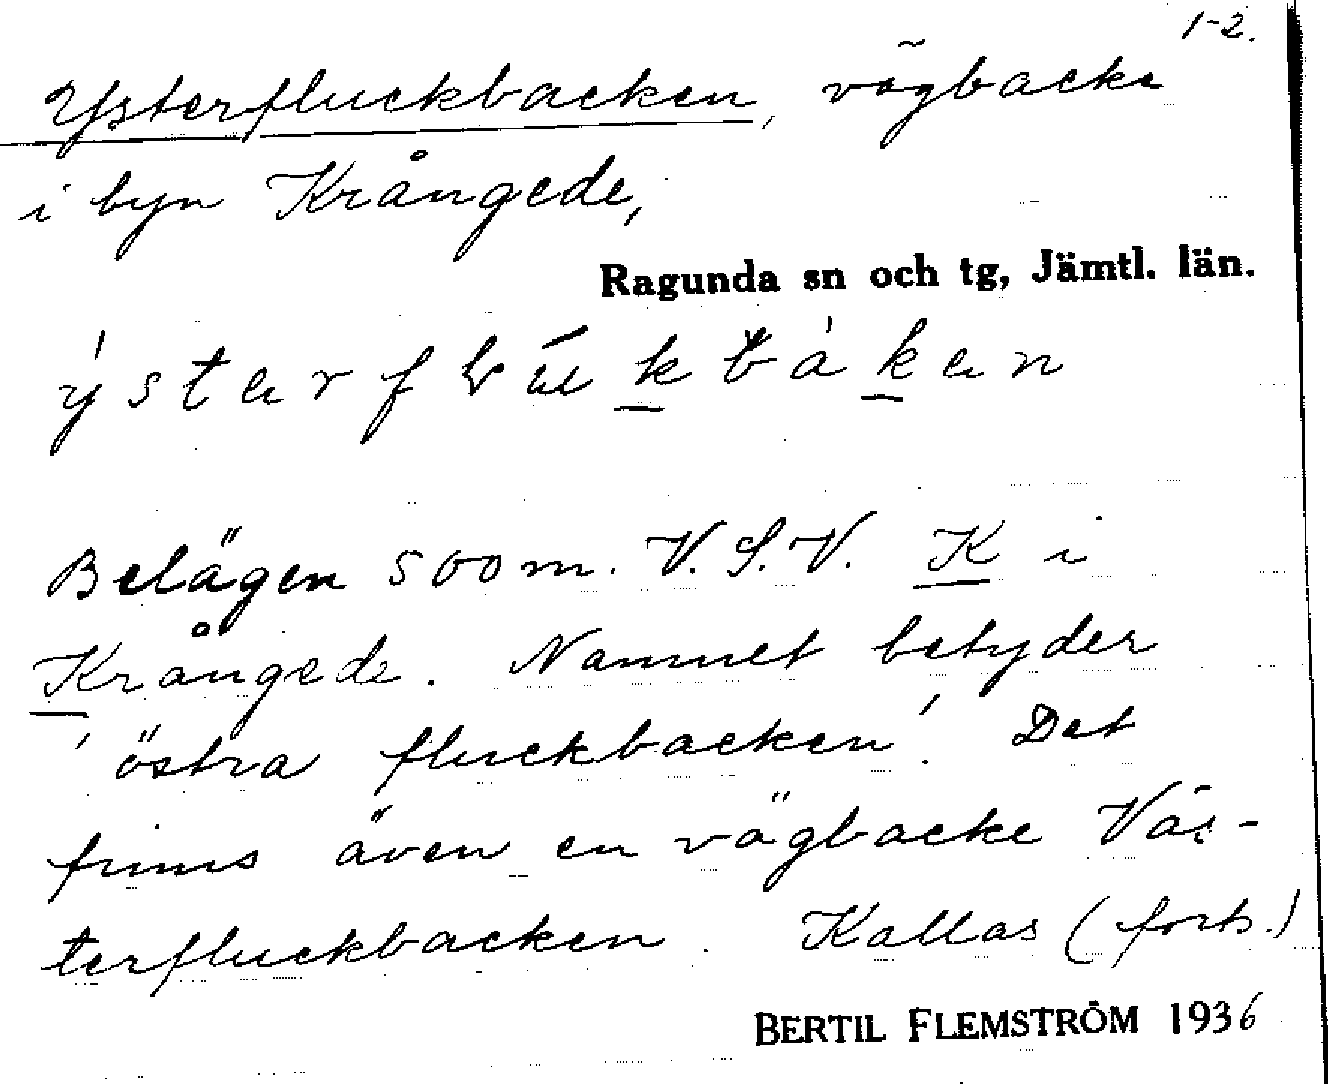 1-2.
Ysterfluckbacken, vägbacke
i byn Krångede,
Ragunda sn och tg, Jämtl. län.
Belägen 500 m. V.S.V. K i
Krångede. Namnet betyder
'östra fluckbacken'. Det
finns även en vägbacke Väs-
terfluckbacken. Kallas (forts.)
BERTIL FLEMSTRÖM 1936